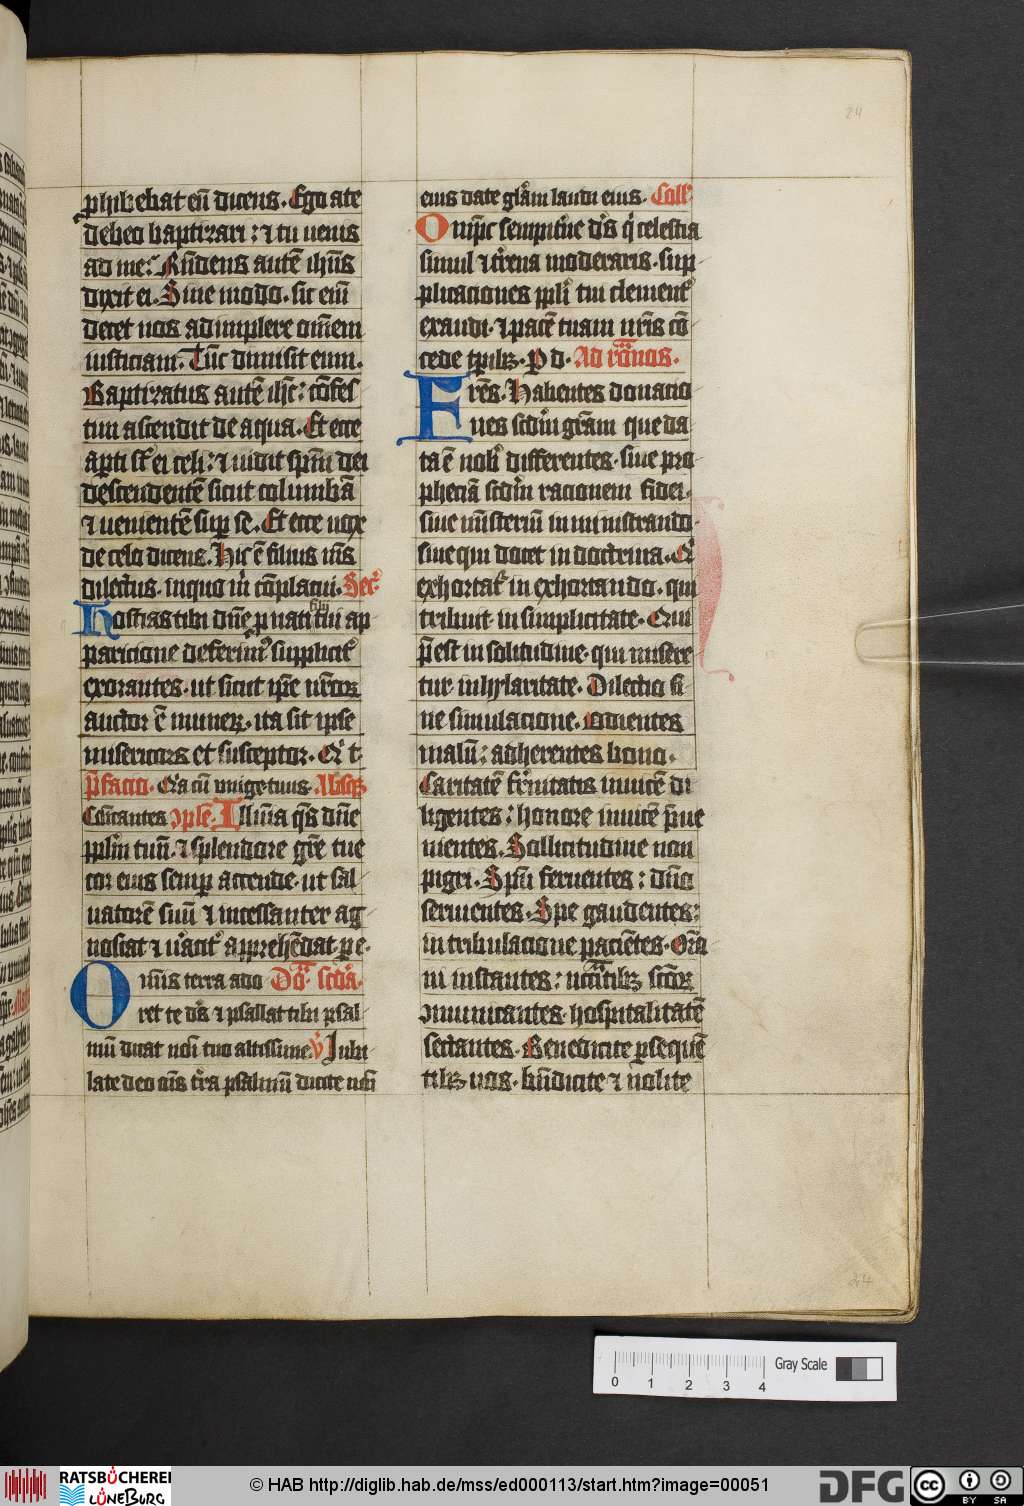 24
phibebat eū dicens. Ego a te
debeo baptizari : ⁊ tu uenis
ad me. Rn̄dens autē ihūs
dixit ei. Sine modo. sic eīm
decet nos adimplere om̄em
iusticiam. Tūc dimisit eum.
Baptizatus autē ihc : cōfes
tim ascendit de aqua. Et ecce
aꝑti sꝰt ei celi : ⁊ uidit spm̄ dei
descendentē sicut columbā
⁊ uenientē suꝑ se. Et ecce uox
de celo dicens. Hic ē filius mūs
dilectus. in quo m̄ cōplacui. Secr̄
Hostias tibi dn̄e ꝑ nati filij tui ap
paricione deferimꝰ supplicit̄
exorantes. ut sicut ip̄e nr̄orꝝ
auctor ē munerꝝ. ita sit ipse
misericors et susceptor. Qi t.
P̄facio. Q̄ia cū vnigenitus. Absqꝫ
Cōicantes Ipse. Illumīa qs̄ dn̄e
ppl̄m tuū. ⁊ splendore gr̄e tue
cor eius semꝑ accende. ut sal
uatorē suū ⁊ incessanter ag
noscat ⁊ u̓acit̓ apprehēdat. ꝑ e.
Omīs terra ado Do̓ scd̓a.
ret te ds̄ ⁊ psallat tibi psal
mū dicat noī tuo altissime. V̓ Jubi
late deo oīs t̓ra psalmū dicite noī
eius date glām laudi eius. Coll̓.
Omp̄c sempit̓ne ds̄ q̓ celestia
simul ⁊ t̓rena moderaris. sup
plicaciones ppl̓i tui clement̓
exaudi. ⁊ pacē tuam nr̄is cō
cede tp̄ibꝫ. P d. Ad romāos.
Frēs. Habentes donacio
nes scdm̄ grām que da
ta ē nob̓ differentes. siue pro
pheciā scdm̄ racionem fidei.
siue mīsteriū in ministrando.
siue qui docet in doctrina. Q̓
exhortat̓ in exhortando. qui
tribuit in simplicitate. Qui
p̄est in solitudine. qui misere
tur in hylaritate. Dilectio si
ne simulacione. Odientes
malū : adherentes bono.
Caritatē fr̄nitatis inuicē di
ligentes : honore inuicē p̄ue
nientes. Sollicitudine non
pigri. Spū feruentes : dn̄o
seruientes. Spe gaudentes :
in tribulacione pacientes. Orō
ni instantes : nccītatibꝫ sctōrꝝ
9municantes. hospitalitatē
sectantes. Benedicite ꝑsequē
tibꝫ uos. bn̄dicite ⁊ nolite
24
Gray Scale
0 1 2 3 4
RATSBÜCHEREI
LÜNEBURG
© HAB http://diglib.hab.de/mss/ed000113/start.htm?image=00051
DFG
cc BY SA